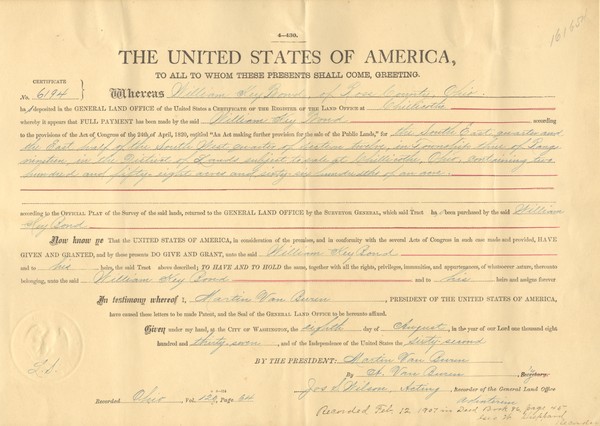 4—430.
16165
THE UNITED STATES OF AMERICA,
TO ALL TO WHOM THESE PRESENTS SHALL COME, GREETING.
CERTIFICATE
No. 6194
Whereas William Key Bond, of Ross County, Ohio
has deposited in the GENERAL LAND OFFICE of the United States a CERTIFICATE OF THE REGISTER OF THE LAND OFFICE AT Chillicothe
whereby it appears that FULL PAYMENT has been made by the said William Key Bond according
to the provisions of the Act of Congress of the 24th of April, 1820, entitled "An Act making further provision for the sale of the Public Lands," for the South East quarter and
the East half of the South West quarter of Section twelve, in Township three of Range
nineteen, in the District of Lands subject to sale at Chillicothe, Ohio, containing two
hundred and fifty-eight acres and sixty-six hundredths of an acre.
according to the OFFICIAL PLAT of the Survey of the said lands, returned to the GENERAL LAND OFFICE by the SURVEYOR GENERAL, which said Tract has been purchased by the said William
Key Bond.
Now know ye That the UNITED STATES OF AMERICA, in consideration of the premises, and in conformity with the several Acts of Congress in such case made and provided, HAVE
GIVEN AND GRANTED, and by these presents DO GIVE AND GRANT, unto the said William Key Bond
and to his heirs, the said Tract above described; TO HAVE AND TO HOLD the same, together with all the rights, privileges, immunities, and appurtenances, of whatsoever nature, thereunto
belonging, unto the said William Key Bond and to his heirs and assigns forever
In testimony whereof I, Martin Van Buren, PRESIDENT OF THE UNITED STATES OF AMERICA,
have caused these letters to be made Patent, and the Seal of the GENERAL LAND OFFICE to be hereunto affixed.
Given under my hand, at the CITY OF WASHINGTON, the eighth day of August, in the year of our Lord one thousand eight
hundred and thirty-seven, and of the Independence of the United States the sixty second
BY THE PRESIDENT: Martin Van Buren
L.S.
By A. Van Buren Secretary.
Jos. S. Wilson, Acting, Recorder of the General Land Office
ad interim
Recorded Ohio, Vol. 120, Page 64
Recorded Feb. 12, 1907 in Deed Book
Recorder